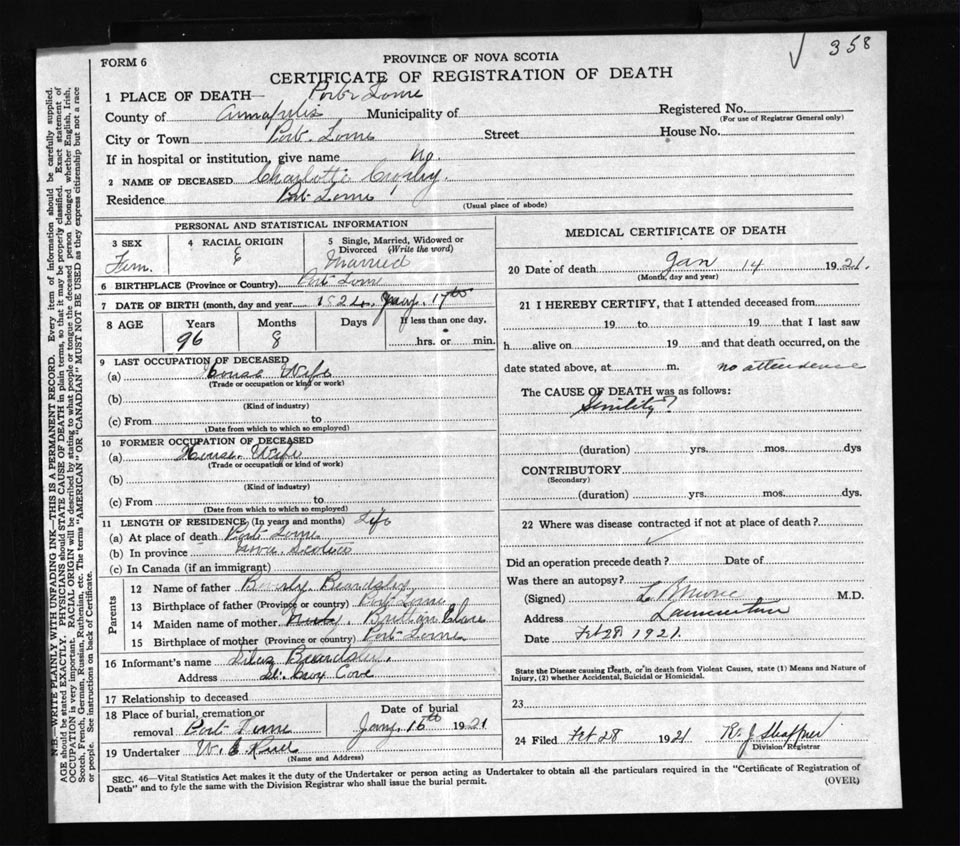 358
FORM 6
PROVINCE OF NOVA SCOTIA
CERTIFICATE OF REGISTRATION OF DEATH
1 PLACE OF DEATH— Port Lorne
County of Annapolis Municipality of Registered No.
(For use of Registrar General only)
City or Town Port Lorne Street House No.
If in hospital or institution, give name no.
2 NAME OF DECEASED Charlotte Crosby.
Residence Port Lorne
(Usual place of abode)
PERSONAL AND STATISTICAL INFORMATION
3 SEX 4 RACIAL ORIGIN 5 Single, Married, Widowed or Divorced (Write the word)
Fem. E Married
6 BIRTHPLACE (Province or Country) Port Lorne
7 DATE OF BIRTH (month, day and year 17th
8 AGE Years Months Days If less than one day,
96 8 hrs. or min.
9 LAST OCCUPATION OF DECEASED
(a) House Wife
(Trade or occupation or kind or work)
(b)
(Kind of industry)
(c) From to
(Date from which to which so employed)
10 FORMER OCCUPATION OF DECEASED
(a) House Wife
(Trade or occupation or kind of work)
(b)
(Kind of industry)
(c) From to
(Date from which to which so employed)
11 LENGTH OF RESIDENCE (In years and months) Life
(a) At place of death Port Lorne
(b) In province Nova Scotia
(c) In Canada (if an immigrant)
Parents
12 Name of father Beardsley
13 Birthplace of father (Province or country) Port Lorne
14 Maiden name of mother
15 Birthplace of mother (Province or country) Port Lorne
16 Informant's name Beardsley.
Address Cove
17 Relationship to deceased
18 Place of burial, cremation or removal Port Date of burial Jany. 16th 1921
19 Undertaker W. E.
(Name and Address)
MEDICAL CERTIFICATE OF DEATH
20 Date of death Jan 14 1921.
(Month, day and year)
21 I HEREBY CERTIFY, that I attended deceased from
19 to 19 that I last saw
h alive on 19 and that death occurred, on the
date stated above, at m. no attendence
The CAUSE OF DEATH was as follows:
Senility?
(duration) yrs. mos. dys
CONTRIBUTORY
(Secondary)
(duration) yrs. mos. dys.
22 Where was disease contracted if not at place of death?
Did an operation precede death? Date of
Was there an autopsy?
(Signed) M.D.
Address Lawrencetown
Date Feb 28 1921.
State the Disease causing Death, or in death from Violent Causes, state (1) Means and Nature of Injury, (2) whether Accidental, Suicidal or Homicidal.
23
24 Filed Feb 28 1921 R. J. Shaffner
Division Registrar
SEC. 46—Vital Statistics Act makes it the duty of the Undertaker or person acting as Undertaker to obtain all the particulars required in the "Certificate of Registration of
Death" and to fyle the same with the Division Registrar who shall issue the burial permit. (OVER)
N.B.—WRITE PLAINLY WITH UNFADING INK—THIS IS A PERMANENT RECORD. Every item of information should be carefully supplied.
AGE should be stated EXACTLY. PHYSICIANS should STATE CAUSE OF DEATH in plain terms, so that it may be properly classified. Exact statement of
OCCUPATION is very important. RACIAL ORIGIN will be described by stating to what people or tongue the deceased person belonged whether English, Irish,
Scotch, French, German, Russian, Ruthenian, etc. The terms "AMERICAN" OR "CANADIAN" MUST NOT BE USED as they express citizenship but not a race
or people. See instructions on back of Certificate.